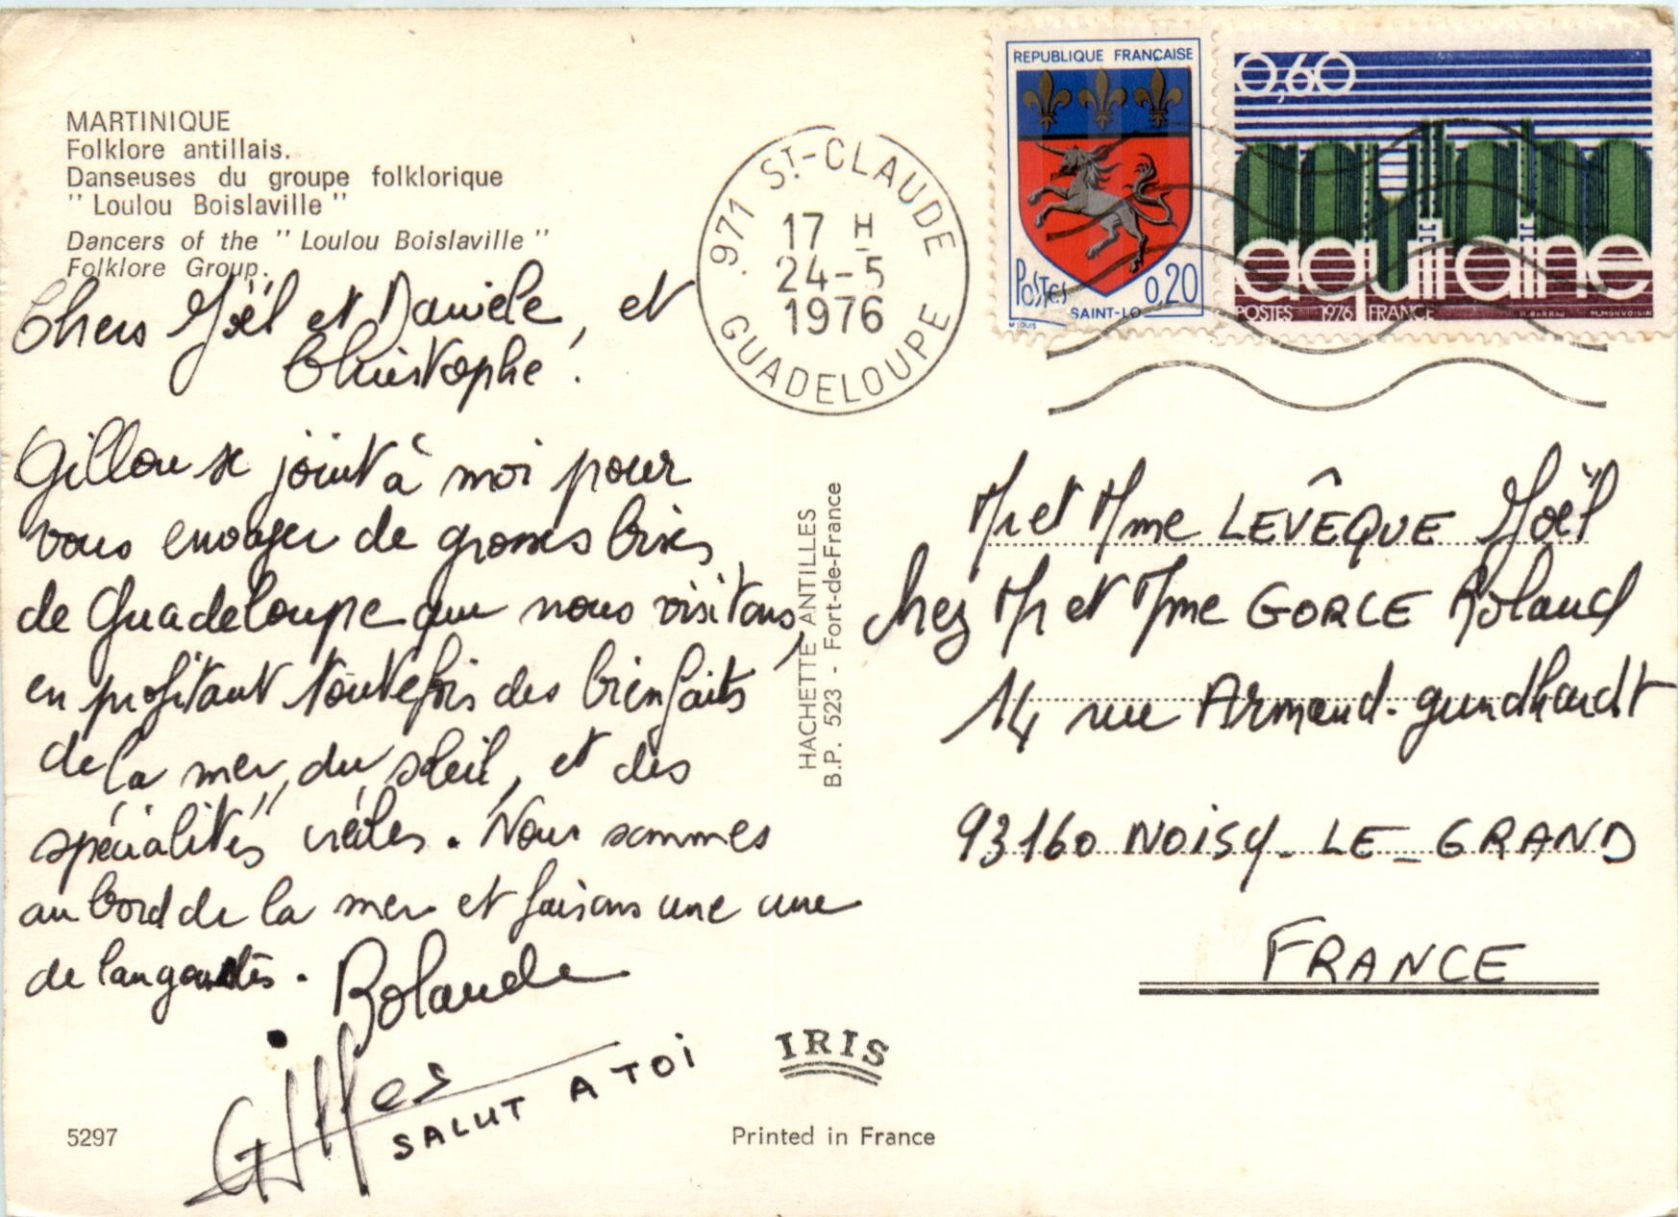 MARTINIQUE
Folklore antillais.
Danseuses du groupe folklorique
" Loulou Boislaville "
Dancers of the " Loulou Boislaville "
Folklore Group.
Chers Joël et Danièle, et
Christophe !
Gillou se joint à moi pour
vous envoyer de grosses bises
de Guadeloupe que nous visitons,
en profitant toutefois des bienfaits
de la mer, du soleil, et des
"spécialités" créoles. Nous sommes
au bord de la mer et faisons une cure
de langoustes.
Rolande
Gilles
SALUT A TOI
5297
971 ST-CLAUDE
17 H
24-5
1976
GUADELOUPE
REPUBLIQUE FRANÇAISE
POSTES 0,20
SAINT-LO
M LOUIS
0,60
aquitaine
POSTES 1976 FRANCE
HACHETTE ANTILLES
B.P. 523 - Fort-de-France
Mr et Mme LEVÊQUE Joël
chez Mr et Mme GORCE Roland
14 rue Armand-
93160 NOISY-LE-GRAND
FRANCE
IRIS
Printed in France